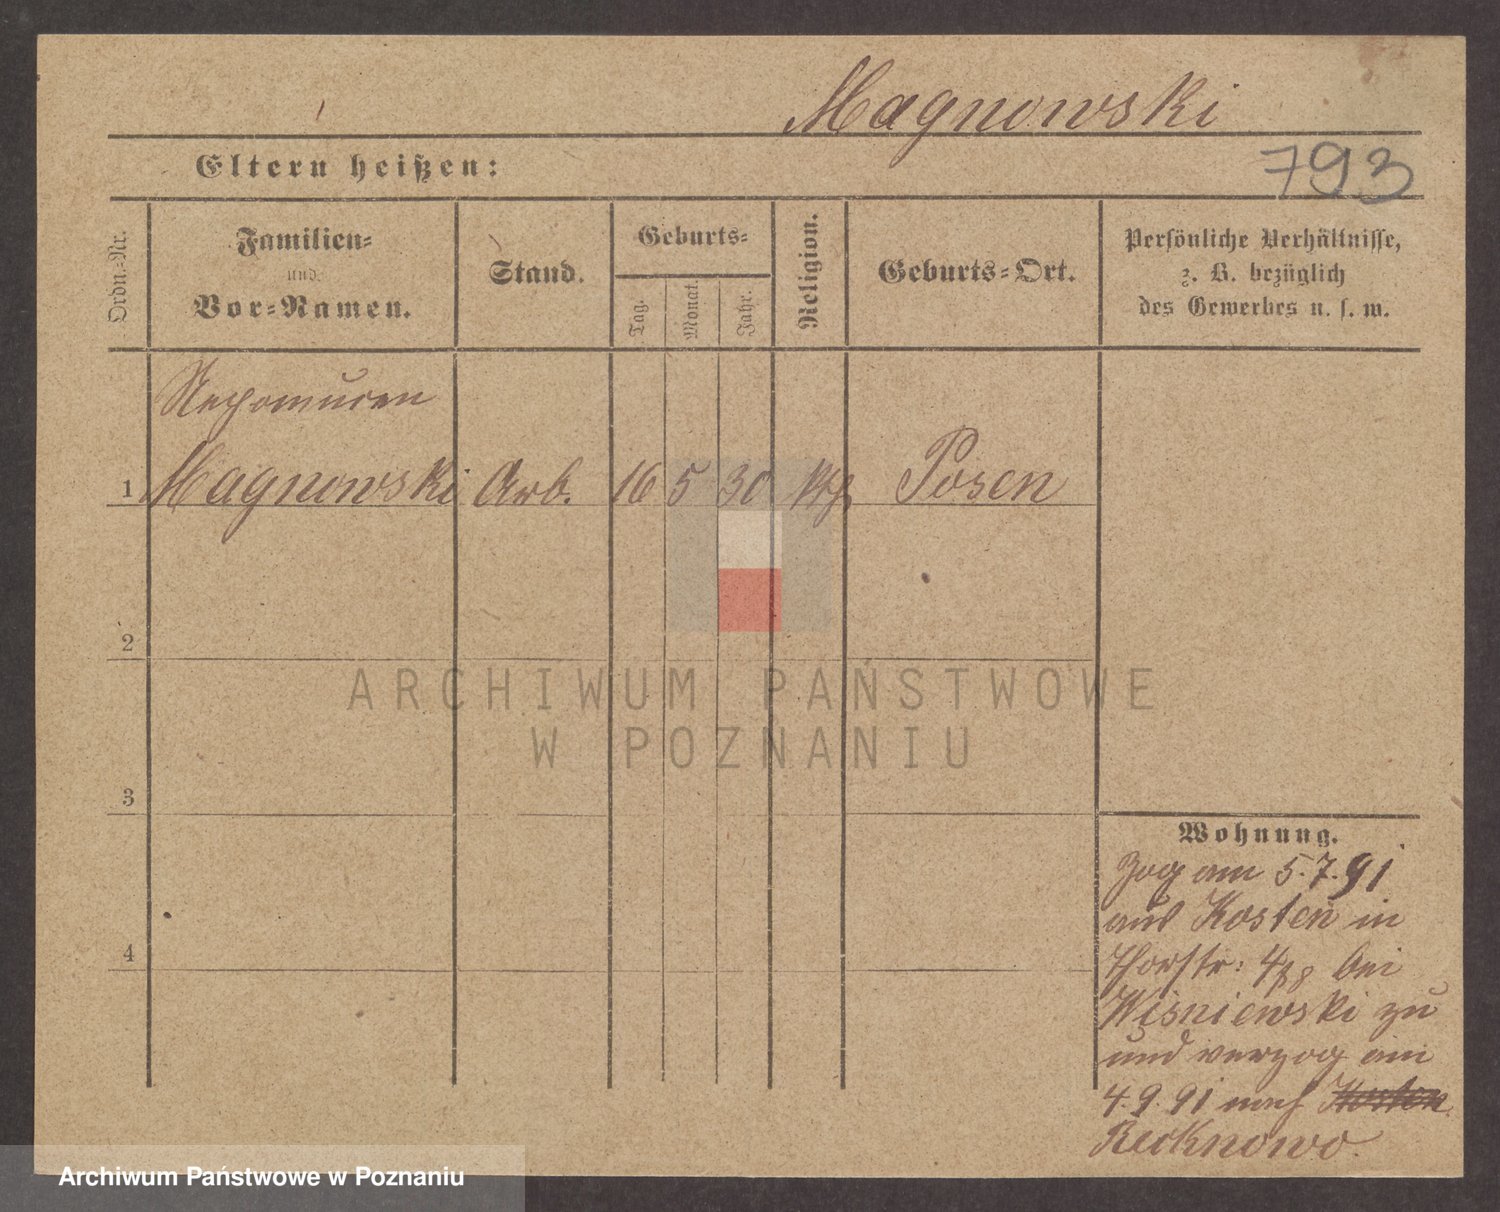 Magnowski
Eltern heißen:
793
Ordn.-Nr.
Familien-
und
Vor-Namen.
Stand.
Geburts-
Tag.
Monat.
Jahr.
Religion.
Geburts-Ort.
Persönliche Verhältnisse,
z. B. bezüglich
des Gewerbes u. s. w.
Nepomucen
1 Magnowski Arb. 16 5 30 kth Posen
2
3
4
ARCHIWUM PAŃSTWOWE
W POZNANIU
Wohnung.
Zog am 5.7.91
aus Kosten in
Thorstr: bei
Wisniewski zu
und verzog am
4.9.91 nach Kosten
Recknowo.
Archiwum Państwowe w Poznaniu